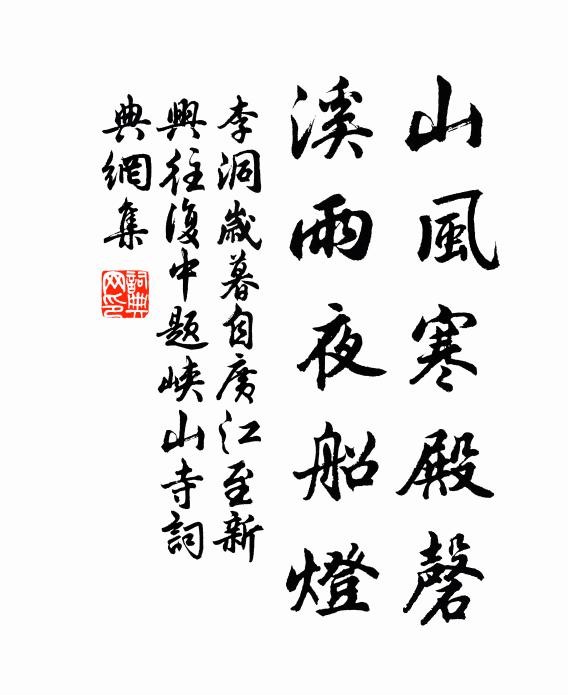 山風寒殿磬
溪雨夜船燈
李洞歲暮自廣江至新
興往復中題峽山寺詞
典網集
詞典
网印